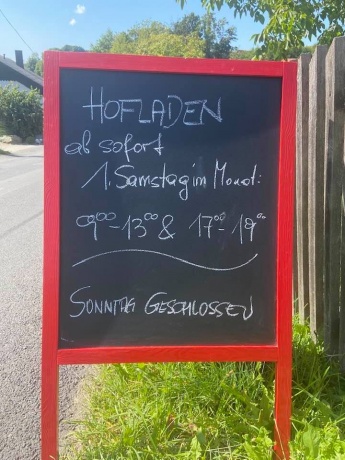 HOFLADEN
ab sofort
1. Samstag im Monat:
09⁰⁰-13⁰⁰ & 17⁰⁰-19⁰⁰
SONNTAG GESCHLOSSEN